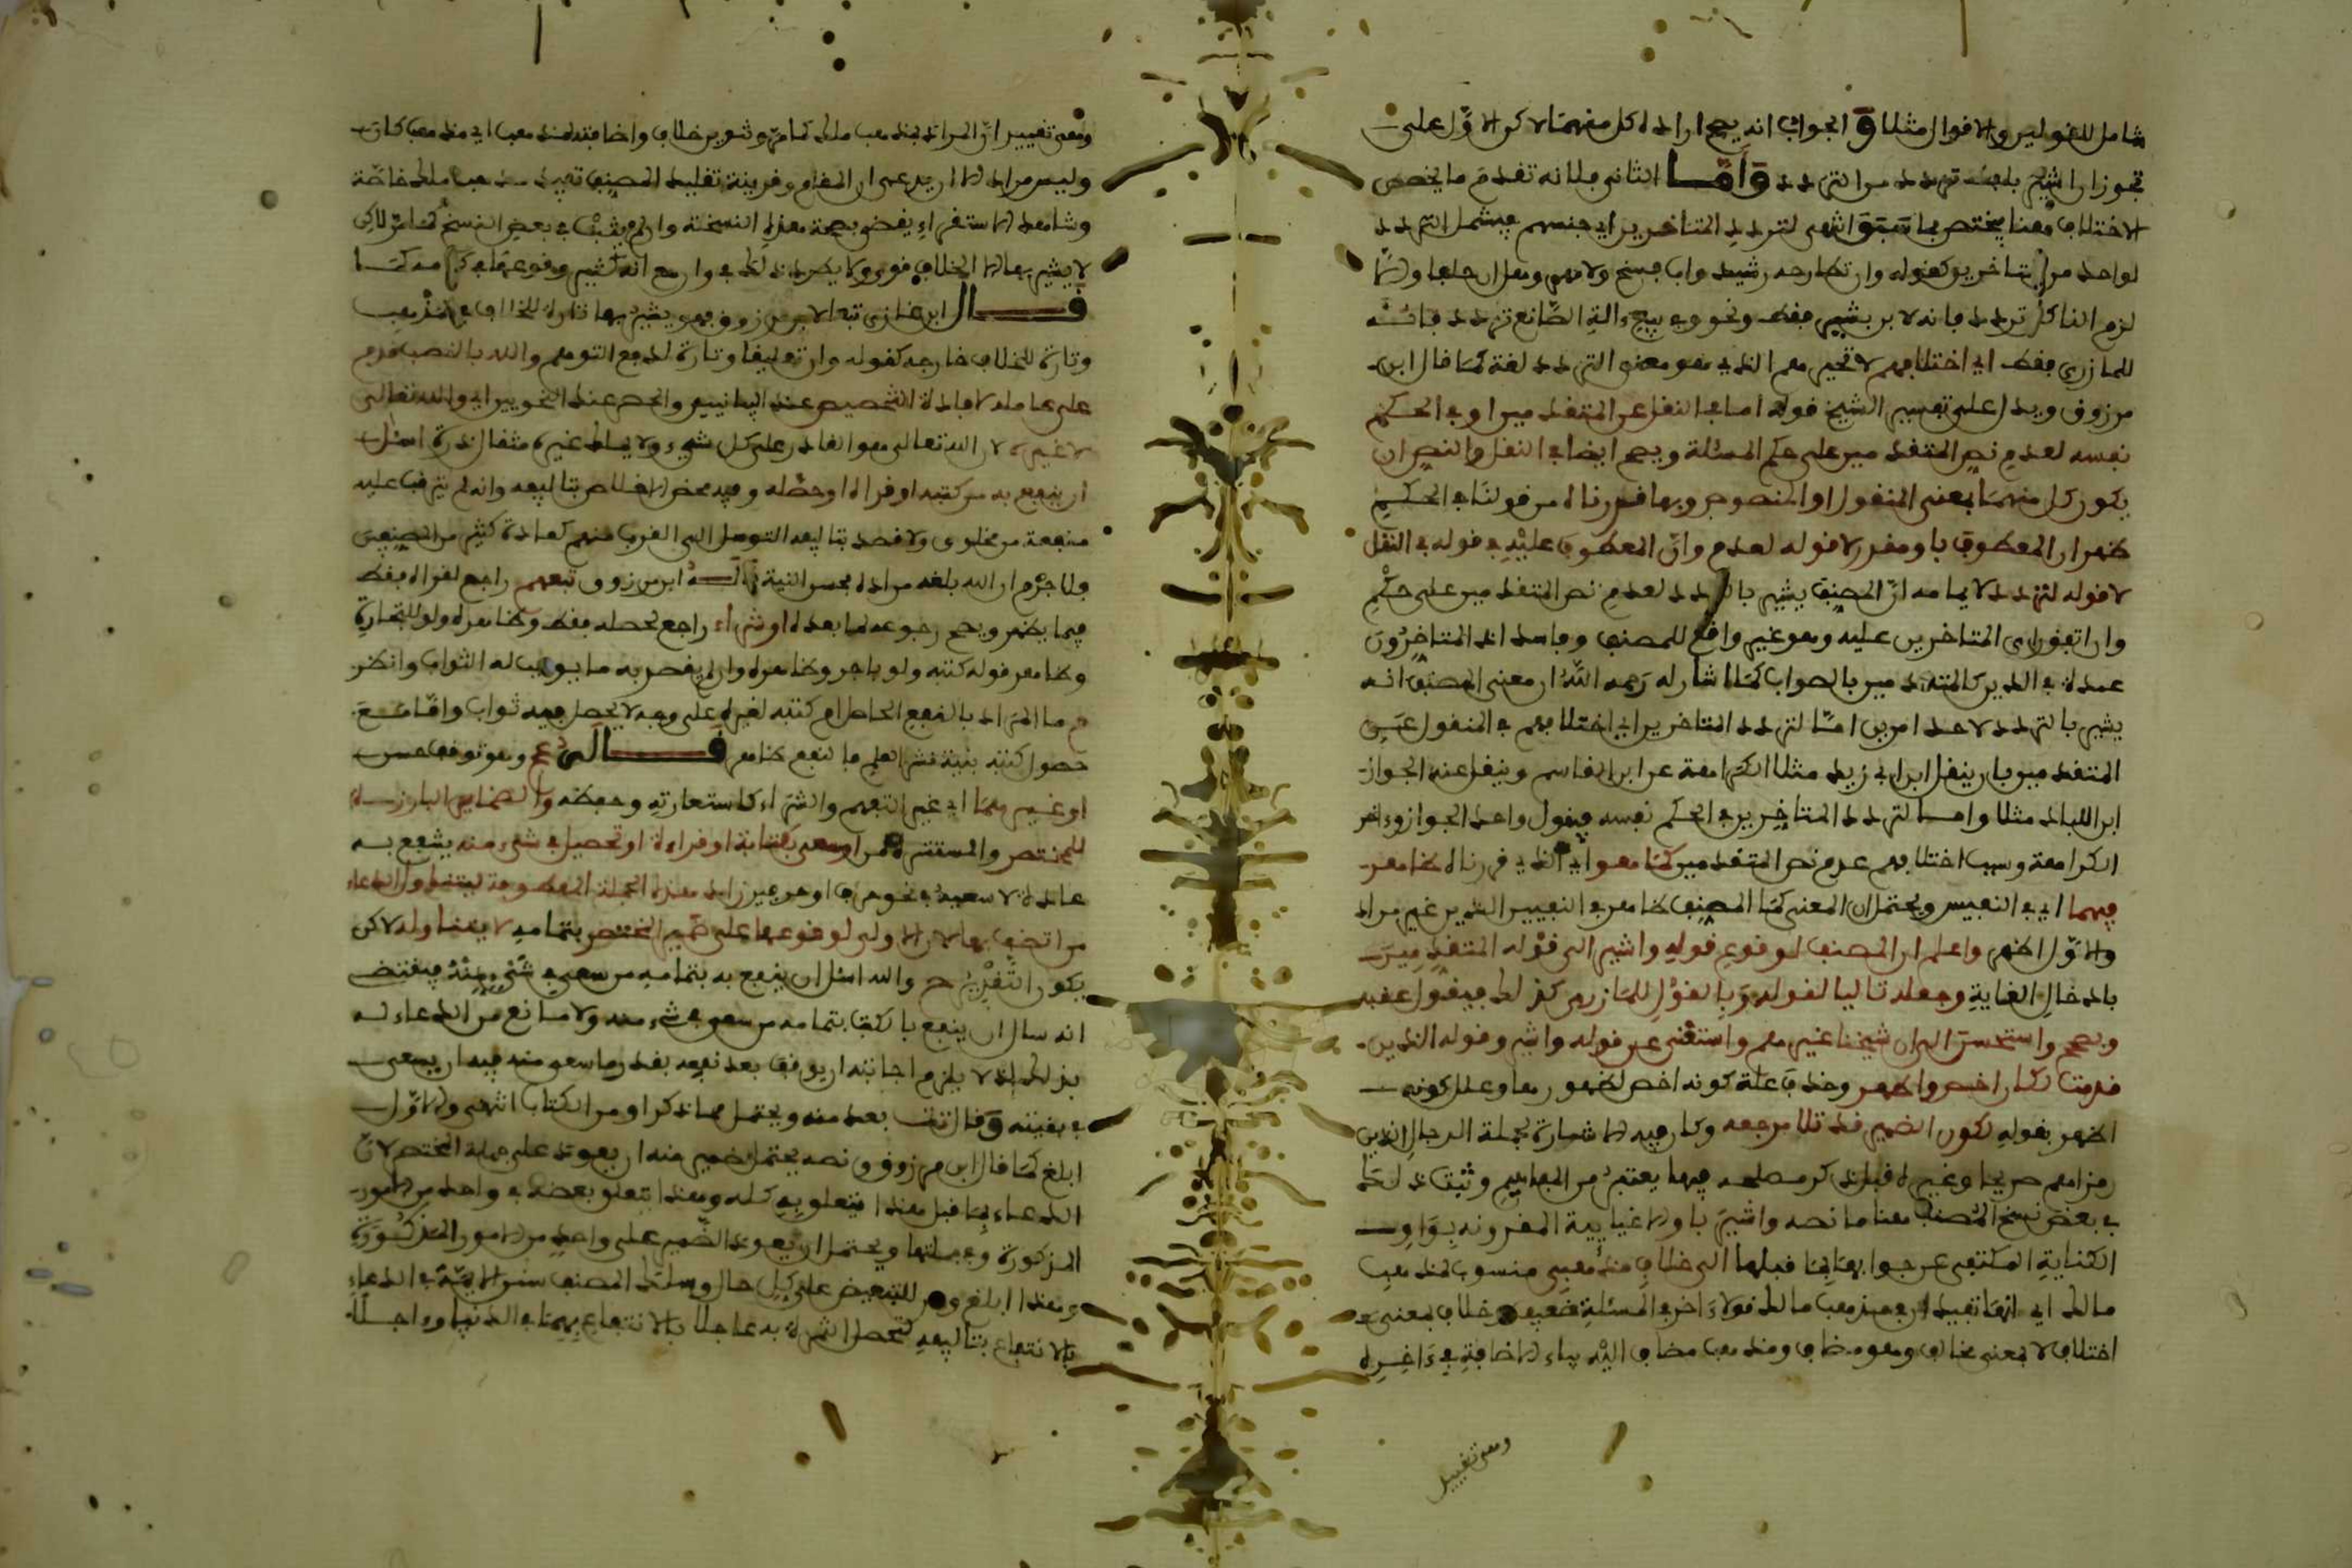 شامل للقولين والاقوال مثلا والجواب انه يصح ارادة كل منهما لاكن الاول على
تجوز اراشيح بلفظ تردد من التردد واما الثاني فلانه تقدم ما يخصص
الاختلاف هنا يختص بما سبق انتهى لتردد المتاخرين اي جنسهم فيشمل التردد
لواحد من المتاخرين كقوله وان
لزم الناكل تردد فانه لابن بشير فقط ونحو وفي بيع الة الصانع تردد فانه
للمازري فقط اي اختلافهم لا تحيرهم الذي هو معنى التردد لغة كما قال ابن
مرزوق ويدل على تفسير الشيخ قوله اما في النقل عن المتقدمين او في الحكم
نفسه لعدم نص المتقدمين على حكم المسئلة ويصح ايضا في النقل والنص ان
يكون كل منهما بمعنى المنقول او المنصوص وبها قررناه من قولنا في الحكم
ظهر ان المعطوف باو مقرر لا قوله لعدم وان المعطوف عليه في قوله في النقل
لا قوله لتردد لايهامه ان المصنف يشير بالتردد لعدم نص المتقدمين على حكم
وان اتفق راى المتاخرين عليه وهو غير واقع للمصنف وفاسد اذ المتاخرون
عمدة في الدين كالمتقدمين بالصواب كما اشار له رحمه الله ان معنى المصنف انه
يشير بالتردد لاحد امرين اما لتردد المتاخرين اي اختلافهم في المنقول عن
المتقدمين بان ينقل ابن ابي زيد مثلا الكراهة عن ابن القاسم وينقل عنه الجواز
ابن اللباد مثلا واما لتردد المتاخرين في الحكم نفسه فيقول واحد الجواز واخر
الكراهة وسبب اختلافهم عدم نص المتقدمين كما هو اي الذي قررناه ظاهر
فيهما اي في التفسير ويحتمل ان المعنى كما المصنف ظاهر في التفسير الغير مراد
والاول اظهر واعلم ان المصنف لو قدم قوله واشير الى قوله المتقدمين
بادخال الغاية وجعله تاليا لقوله وبالقول للمازري كذلك فيقول عقبه
وصحح واستحسن الى ان شيخنا غيرهم واستغنى عن قوله واشير وقوله الذين
قدمت لكان اخصر واظهر وحذف علة كونه اخصر لظهورها وعلل كونه
اظهر بقوله لكون الضمير قد تلا مرجعه وكان فيه الاشارة لجملة الرجال الذين
رمز لهم صريحا وغيره قبل ذكر مصطلحه فيها يعتبر من المفاهيم وثبت ذلك
في بعض نسخ المصنف هنا ما نصه واشير باو الاغيايية المقرونة بواو
الكناية المكتفى عن جوابها بما قبلها الى خلاف مذهبي منسوب لمذهب
مالك اي انها تفيد ان في مذهب مالك قولا اخر في المسئلة خلاف بمعنى
اختلاف لا بمعنى مخالف وهو مضاف ومذهب مضاف اليه بياء الاضافة في اخره
ومعنى تغيير
ومعنى تغيير ان المراد بمذهب مالك كما مر وتنوين خلاف واضافته لمذهب اي مذهب كان
وليس مرادا اذ يدعى ان المقام وقرينة تقليد المصنف تفيد مذهب مالك خاصة
وشاهد الاستقراء يقضي بصحة هذه النسخة وان لم يثبت في بعض النسخ كما مر لاكن
لا يشير بها الا لخلاف قوي ولا يطرد ذلك في وان مع انه كثير وقوعها في كلامه كما
قال ابن غازي تبعا لابن مرزوق فهو يشير بها تارة للخلاف في المذهب
وتارة للخلاف خارجه كقوله وان تعليقا وتارة لدفع التوهم والله بالنصب قدم
على عامله لافادة التخصيص عند البيانيين والحصر عند النحويين اي والله تعالى
لا غيره لان الله تعالى هو القادر على كل شيء ولا يملك غيره مثقال ذرة اسئل
ان ينفع به من كتبه او قراه او حصله وفيه محض الاخلاص بتاليفه وانه لم يترقب عليه
منفعة من مخلوق ولا قصد بتاليفه التوصل الى القرب منهم كعادة كثير من المصنفين
ولا جرم ان الله بلغه مراده بحسن النية قاله ابن مرزوق تفهم راجع لقراه فقط
فيما يظهر ويصح رجوعه لما بعده او شراء راجع لحصله فقط وظاهره ولو للتجارة
وظاهر قوله كتبه ولو باجر وظاهره وان لم يقصد به ما يوجب له الثواب وانظر
ما المراد بالنفع الحاصل من كتبه لغيره على وجه لا يحصل فيه ثواب واما مع
حصول كتبه بنية نشر العلم فالنفع ظاهر قاله عج وهو توقف حسن
او غيرهما اي غير التفهم والشراء كاستعارته وحفظه والضمائر البارزة
للمختصر والمستترة لمن او سعى بكتابة او قراءة او تحصيل في شيء منه ينفع به
عائدة لا سعيه في نحو هراق او حرجين زاد هذه الجملة المعطوفة ليتناول الدعاء
من اتصف بها لان الاولى لوقوعها على ضمير المختصر بتمامه لا يتناوله لاكن
يكون التقرير ح والله اسئل ان ينفع به بتمامه من سعى في شيء منه فيقتضي
انه سال ان ينفع بالكتاب بتمامه من سعى في شيء منه ولا مانع من الدعاء له
بذلك اذ لا يلزم اجابته ان يوفق بعد نفعه بقدر ما سعى منه فيه ان يسعى
في بقيته وقال تت بعد منه ويحتمل مما ذكر او من الكتاب انتهى والاول
ابلغ كما قال ابن مرزوق ونصه يحتمل ضمير منه ان يعود على جملة المختصر لان
الدعاء بما قبل هذا يتعلق به كله وهذا يتعلق ببعضه في واحد من الامور
المذكورة وجملتها ويحتمل ان يعود الضمير على واحد من الامور المذكورة
وهذا ابلغ ومن للتبعيض على كل حال وسلك المصنف سنن الايمة في الدعاء
بالانتفاع بتاليفه لتحصل الثمرة به عاجلا بالانتفاع بهما في الدنيا واجلا